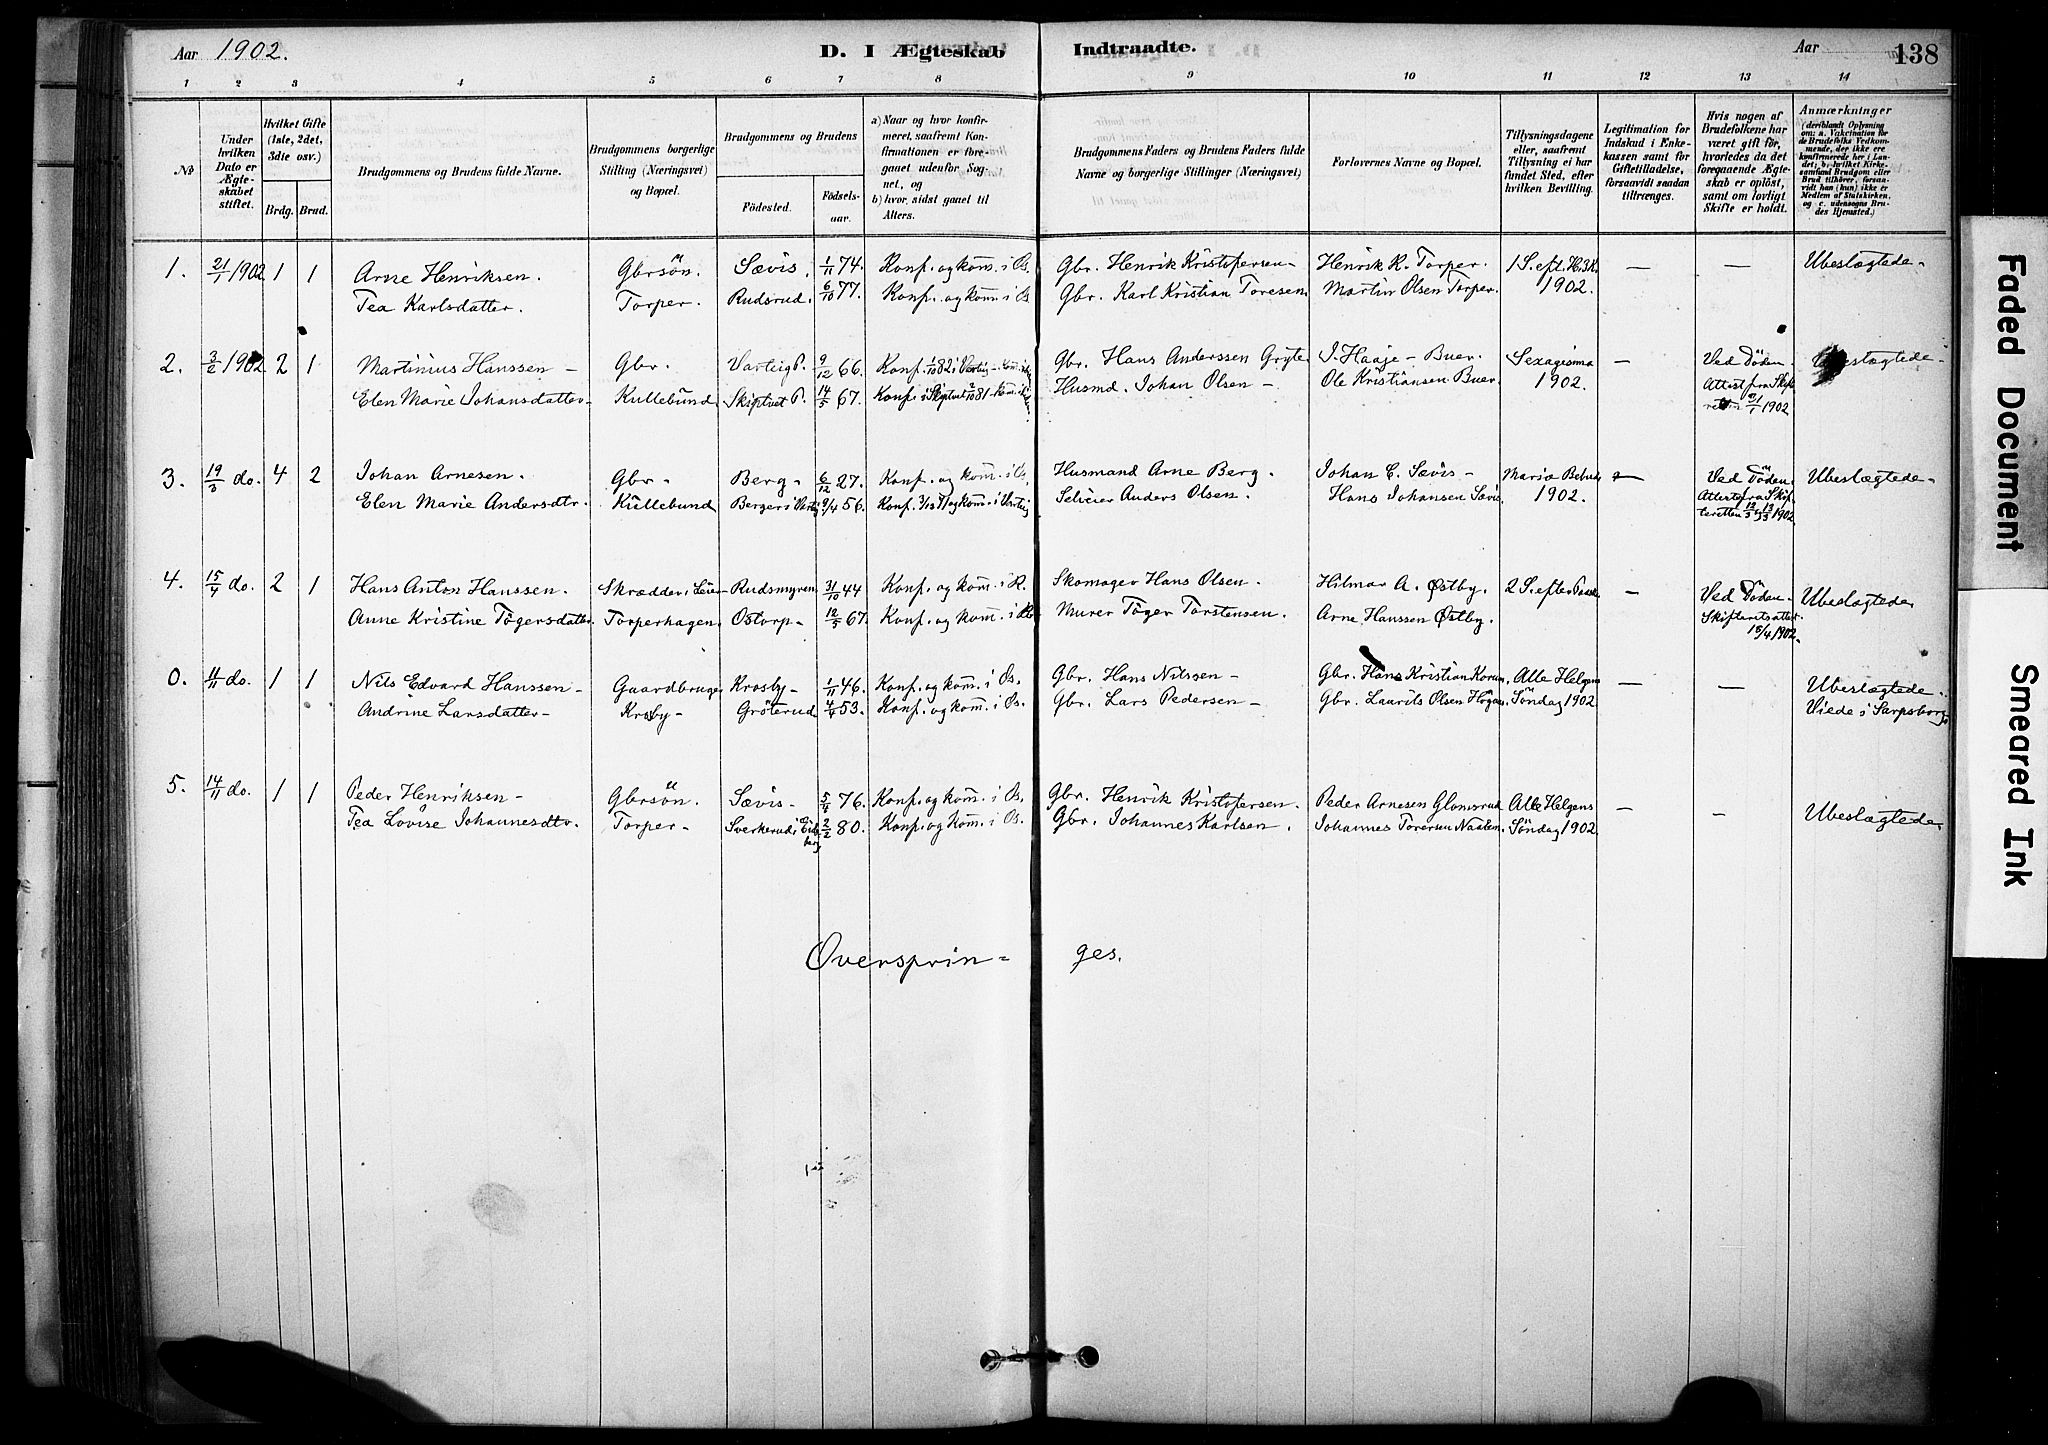 Aar 1902.
D. I Ægteskab Indtraadte.
Aar
138
1 2 3 4 5 6 7 8 9 10 11 12 13 14
No
Under hvilken Dato er Ægteskabet stiftet.
Hvilket Gifte (1ste, 2det, 3die osv.)
Brdg. Brud.
Brudgommens og Brudens fulde Navne.
Brudgommens borgerlige Stilling (Næringsvei) og Bopæl.
Brudgommens og Brudens
Födested.
Födselsaar.
a) Naar og hvor konfirmeret, saafremt Konfirmationen er foregaaet udenfor Sognet, og
b) hvor, sidst gaaet til Alters.
Brudgommens Faders og Brudens Faders fulde Navne og borgerlige Stillinger (Næringsvei)
Forlovernes Navne og Bopæl.
Tillysningsdagene eller, saafremt Tillysning ei har fundet Sted, efter hvilken Bevilling.
Legitimation for Indskud i Enkekassen samt for Giftetilladelse, forsaavidt saadan tiltrænges.
Hvis nogen af Brudefolkene har været gift før, hvorledes da det foregaaende Ægteskab er opløst, samt om lovligt Skifte er holdt.
Anmærkninger
(deriblandt Oplysning om: a. Vakcination for de Brudefolks Vedkommende, der ikke ere konfirmerede her i Landet; b. hvilket Kirkesamfund Brudgom eller Brud tilhører, forsaavidt han (hun) ikke er Medlem af Statskirken, og c. udensogns Brudes Hjemsted.)
1. 21/1 1902 1 1 Arne Henriksen. Gbrsön. Sævis. 1/11 74. Konf. og kom. i Øs. Gbr. Henrik Kristofersen - Henrik K. Torper. 1 S. eft. H.3K. — — Ubeslægtede -
Tea Karlsdatter. Torper. Rudsrud. 6/10 77. Konf. og kom. i Øs Gbr. Karl Kristian Toresen Martin Olsen Torper. 1902.
2. 3/2 1902 2 1 Martinius Hanssen - Gbr. Varteig P. 9/12 66. Konf. 1/10 82 i Varteig - Kom. i Gbr. Hans Anderssen Gryte J. Haaje - Buer. Sexagesima — Ved Döden. Ubeslægtede -
Elen Marie Johansdatter - Kullebund Skiptvet P. 14/5 67. Konf. i Skiptvet 2/10 81 - Kom. i Husmd. Johan Olsen - Ole Kristiansen Buer 1902. Attest fra Skif
retten 31/1 1902
3. 19/3 do. 4 2 Johan Arnesen. Gbr - Berg - 6/12 27. Konf. og kom. i Øs. Husmand Arne Berg. Johan C. Sævis - Mariæ Bebud — Ved Döden. Ubeslægtede -
Elen Marie Andersdtr. Kullebund Berger i Varteig 9/4 56. Konf. og kom. i Varteig Anders Olsen. Hans Johansen Sævis 1902. Attest fra Skif
teretten 12/3 13/3 1902
4. 15/4 do. 2 1 Hans Anton Hanssen. Skrædder, Leier - Rudsmyren 31/10 44 Konf. og kom. i R. Skomager Hans Olsen. Hilmar A. Østby. 2 S. efter Paaske — Ved Döden - Ubeslægtede
Anne Kristine Tögersdatter Torperhagen Ostorp - 12/5 67. Konf. og kom. i Murer Töger Torstensen. Arne Hanssen Østby. Skifteretsattest
15/4 1902.
0. 11/11 do. 1 1 Nils Edvard Hanssen - Gaardbruger Krosby - 1/11 46. Konf. og kom. i Øs. Gbr. Hans Nilssen - Gbr. Hans Kristian Alle Helgens — — Ubeslægtede -
Andrine Larsdatter - Krosby - Gröterud 53. Konf. og kom. i Øs. Gbr. Lars Pedersen - Gbr. Laurits Olsen Söndag 1902. Viede i Sarpsborg
5. 14/11 do. 1 1 Peder Henriksen - Gbrsön. Sævis - 76. Konf. og kom. i Øs. Gbr. Henrik Kristofersen. Peder Arnesen Glomsrud Alle Helgens — - Ubeslægtede
Tea Lovise Johannesdtr. Torper - Sverkerud i Eidsberg 2/2 80. Konf. og kom. i Øs. Gbr. Johannes Karlsen. Johannes Toresen Söndag 1902.
Oversprin= ges.
Faded Document
Smeared Ink